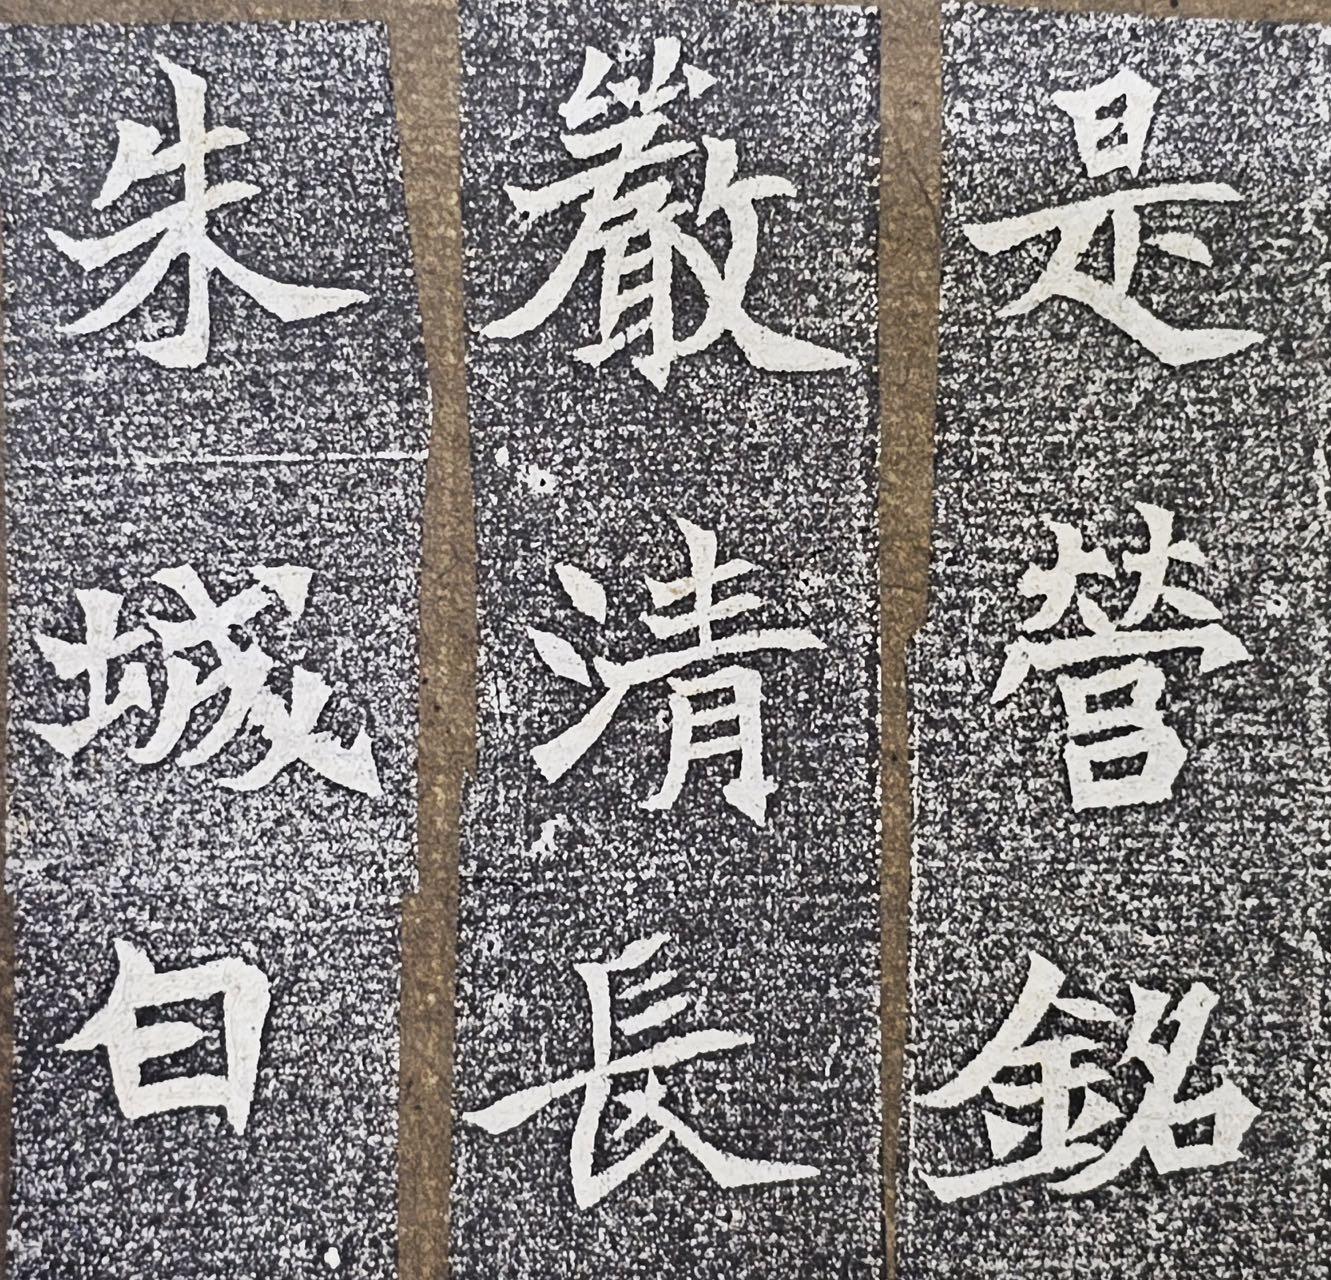 是營銘
嚴清長
朱城白